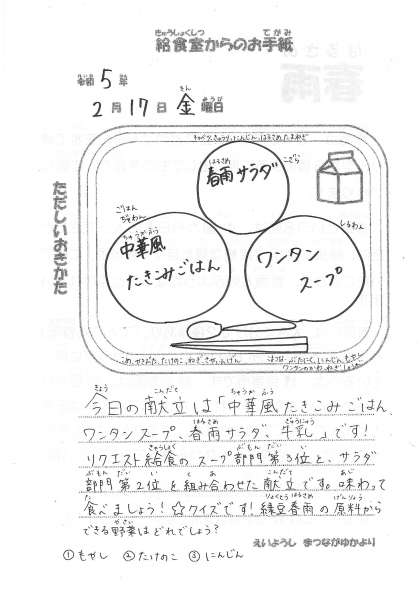 給食室からのお手紙
きゅうしょくしつ てがみ
令和5年
2月17日金曜日
ただしいおきかた
春雨サラダ
はるさめ
こざら
ごはん
ちゃわん
中華風
ちゅうかふう
たきこみごはん
しるわん
ワンタン
スープ
きょう こんだて ちゅうかふう
今日の献立は「中華風たきこみごはん、
はるさめ ぎゅうにゅう
ワンタンスープ、春雨サラダ、牛乳」です!
きゅうしょく ぶもん だい い
リクエスト給食のスープ部門第3位と、サラダ
ぶもん だい い く あ こんだて あじ
部門第2位を組み合わせた献立です。味わって
た りょくとうはるさめ げんりょう
食べましょう!☆クイズです!緑豆春雨の原料から
やさい
できる野菜はどれでしょう?
①もやし ②たけのこ ③にんじん
えいようし まつながゆかより